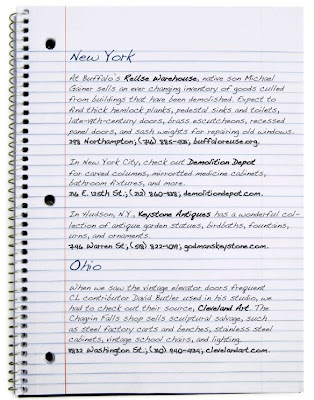 New York
At Buffalo's ReUse Warehouse, native son Michael
Gainer sells an ever changing inventory of goods culled
from buildings that have been demolished. Expect to
find thick hemlock planks, pedestal sinks and toilets,
late-19th-century doors, brass escutcheons, recessed
panel doors, and sash weights for repairing old windows.
298 Northampton; (716) 885-4131, buffaloreuse.org.
In New York City, check out Demolition Depot
for carved columns, mirrored medicine cabinets,
bathroom fixtures, and more.
216 E. 125th St.; (212) 860-1138, demolitiondepot.com.
In Hudson, N.Y., Keystone Antiques has a wonderful col-
lection of antique garden statues, birdbaths, fountains,
urns, and ornaments.
746 Warren St; (518) 822-1019, godmanskeystone.com.
Ohio
When we saw the vintage elevator doors frequent
CL contributor David Butler used in his studio, we
had to check out their source, Cleveland Art. The
Chagrin Falls shop sells sculptural salvage, such
as steel factory carts and benches, stainless steel
cabinets, vintage school chairs, and lighting.
Washington St., clevelandart.com.